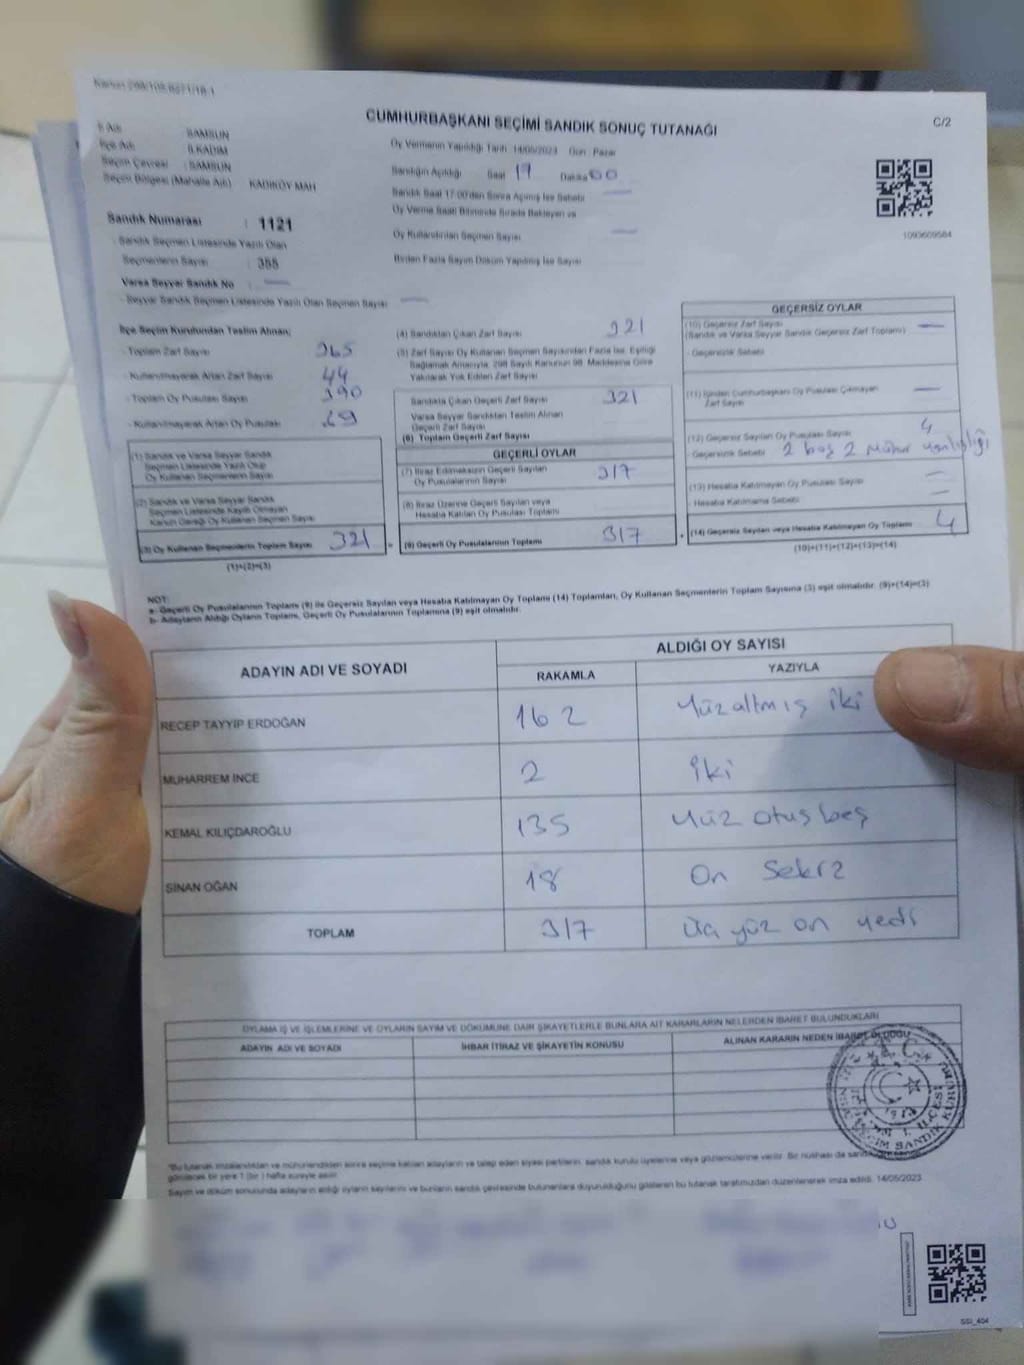 CUMHURBAŞKANI SEÇİMİ SANDIK SONUÇ TUTANAĞI
C/2
İl Adı : SAMSUN
İlçe Adı : İLKADIM
Seçim Çevresi : SAMSUN
Seçim Bölgesi (Mahalle Adı) : KADIKÖY MAH
Oy Vermenin Yapıldığı Tarih 14/05/2023 Gün : Pazar
Sandığın Açıldığı Saat 17 Dakika 00
Sandık Saat 17:00'den Sonra Açılmış İse Sebebi
Oy Verme Saati Bitiminde Sırada Bekleyen ve
Oy Kullandırılan Seçmen Sayısı
Birden Fazla Sayım Döküm Yapılmış İse Sayısı
1093609584
Sandık Numarası : 1121
- Sandık Seçmen Listesinde Yazılı Olan
Seçmenlerin Sayısı : 355
Varsa Seyyar Sandık No :
- Seyyar Sandık Seçmen Listesinde Yazılı Olan Seçmen Sayısı
İlçe Seçim Kurulundan Teslim Alınan;
- Toplam Zarf Sayısı 365
- Kullanılmayarak Artan Zarf Sayısı 44
- Toplam Oy Pusulası Sayısı 390
- Kullanılmayarak Artan Oy Pusulası 69
(1) Sandık ve Varsa Seyyar Sandık
Seçmen Listesinde Yazılı Olup
Oy Kullanan Seçmenlerin Sayısı
(2) Sandık ve Varsa Seyyar Sandık
Seçmen Listesinde Kayıtlı Olmayan
Kanun Gereği Oy Kullanan Seçmen Sayısı
(3) Oy Kullanan Seçmenlerin Toplam Sayısı 321
(1)+(2)=(3)
(4) Sandıktan Çıkan Zarf Sayısı 321
(5) Zarf Sayısı Oy Kullanan Seçmen Sayısından Fazla İse, Eşitliği
Sağlamak Amacıyla, 298 Sayılı Kanunun 98. Maddesine Göre
Yakılarak Yok Edilen Zarf Sayısı
Sandıkta Çıkan Geçerli Zarf Sayısı 321
Varsa Seyyar Sandıktan Teslim Alınan
Geçerli Zarf Sayısı
(6) Toplam Geçerli Zarf Sayısı
GEÇERLİ OYLAR
(7) İtiraz Edilmeksizin Geçerli Sayılan
Oy Pusulalarının Sayısı 317
(8) İtiraz Üzerine Geçerli Sayılan veya
Hesaba Katılan Oy Pusulası Toplamı
(9) Geçerli Oy Pusulalarının Toplamı 317
GEÇERSİZ OYLAR
(10) Geçersiz Zarf Sayısı
(Sandık ve Varsa Seyyar Sandık Geçersiz Zarf Toplamı)
- Geçersizlik Sebebi
(11) İçinden Cumhurbaşkanı Oy Pusulası Çıkmayan
Zarf Sayısı
(12) Geçersiz Sayılan Oy Pusulası Sayısı 4
- Geçersizlik Sebebi 2 boş 2 mühür yanlışlığı
(13) Hesaba Katılmayan Oy Pusulası Sayısı
- Hesaba Katılmama Sebebi
(14) Geçersiz Sayılan veya Hesaba Katılmayan Oy Toplamı 4
(10)+(11)+(12)+(13)=(14)
NOT:
a- Geçerli Oy Pusulalarının Toplamı (9) ile Geçersiz Sayılan veya Hesaba Katılmayan Oy Toplamı (14) Toplamları, Oy Kullanan Seçmenlerin Toplam Sayısına (3) eşit olmalıdır. (9)+(14)=(3)
b- Adayların Aldığı Oyların Toplamı, Geçerli Oy Pusulalarının Toplamına (9) eşit olmalıdır.
ADAYIN ADI VE SOYADI ALDIĞI OY SAYISI
RAKAMLA YAZIYLA
RECEP TAYYİP ERDOĞAN 162 Yüzaltmış iki
MUHARREM İNCE 2 iki
KEMAL KILIÇDAROĞLU 135 Yüz otuz beş
SİNAN OĞAN 18 On Sekiz
TOPLAM 317 Üç yüz on yedi
OYLAMA İŞ VE İŞLEMLERİNE VE OYLARIN SAYIM VE DÖKÜMÜNE DAİR ŞİKAYETLERLE BUNLARA AİT KARARLARIN NELERDEN İBARET BULUNDUKLARI
ADAYIN ADI VE SOYADI İHBAR İTİRAZ VE ŞİKAYETİN KONUSU ALINAN KARARIN NEDEN İBARET OLDUĞU
Sayım ve döküm sonucunda adayların aldığı oyların sayılarını ve bunların sandık çevresinde bulunanlara duyurulduğunu gösteren bu tutanak tarafımızdan düzenlenerek imza edildi. 14/05/2023
SSI_404